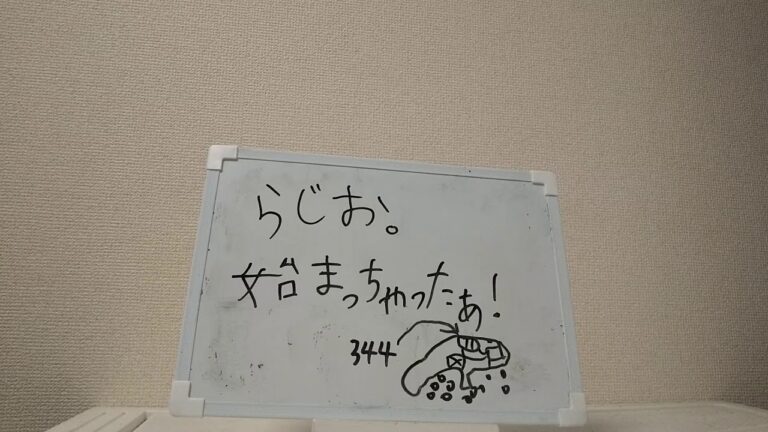 らじお。
始まっちゃったぁ!
344